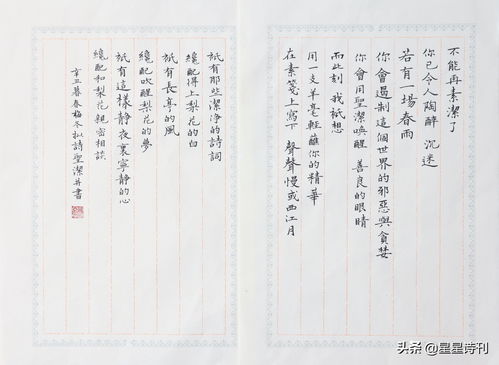 不能再素潔了
你已令人陶醉 沉迷
若有一場春雨
你會遏制這個世界的邪惡與貪婪
你會用聖潔喚醒 善良的眼睛
而此刻 我祇想
用一支羊毫輕蘸你的精華
在素箋上寫下 聲聲慢或西江月
祇有那些潔净的詩詞
纔配得上梨花的白
祇有長亭的風
纔配吹醒梨花的夢
祇有這樣静夜裏寧静的心
纔配和梨花親密相談
辛丑暮春梅冬拟詩聖潔并書
头条 @星星诗刊